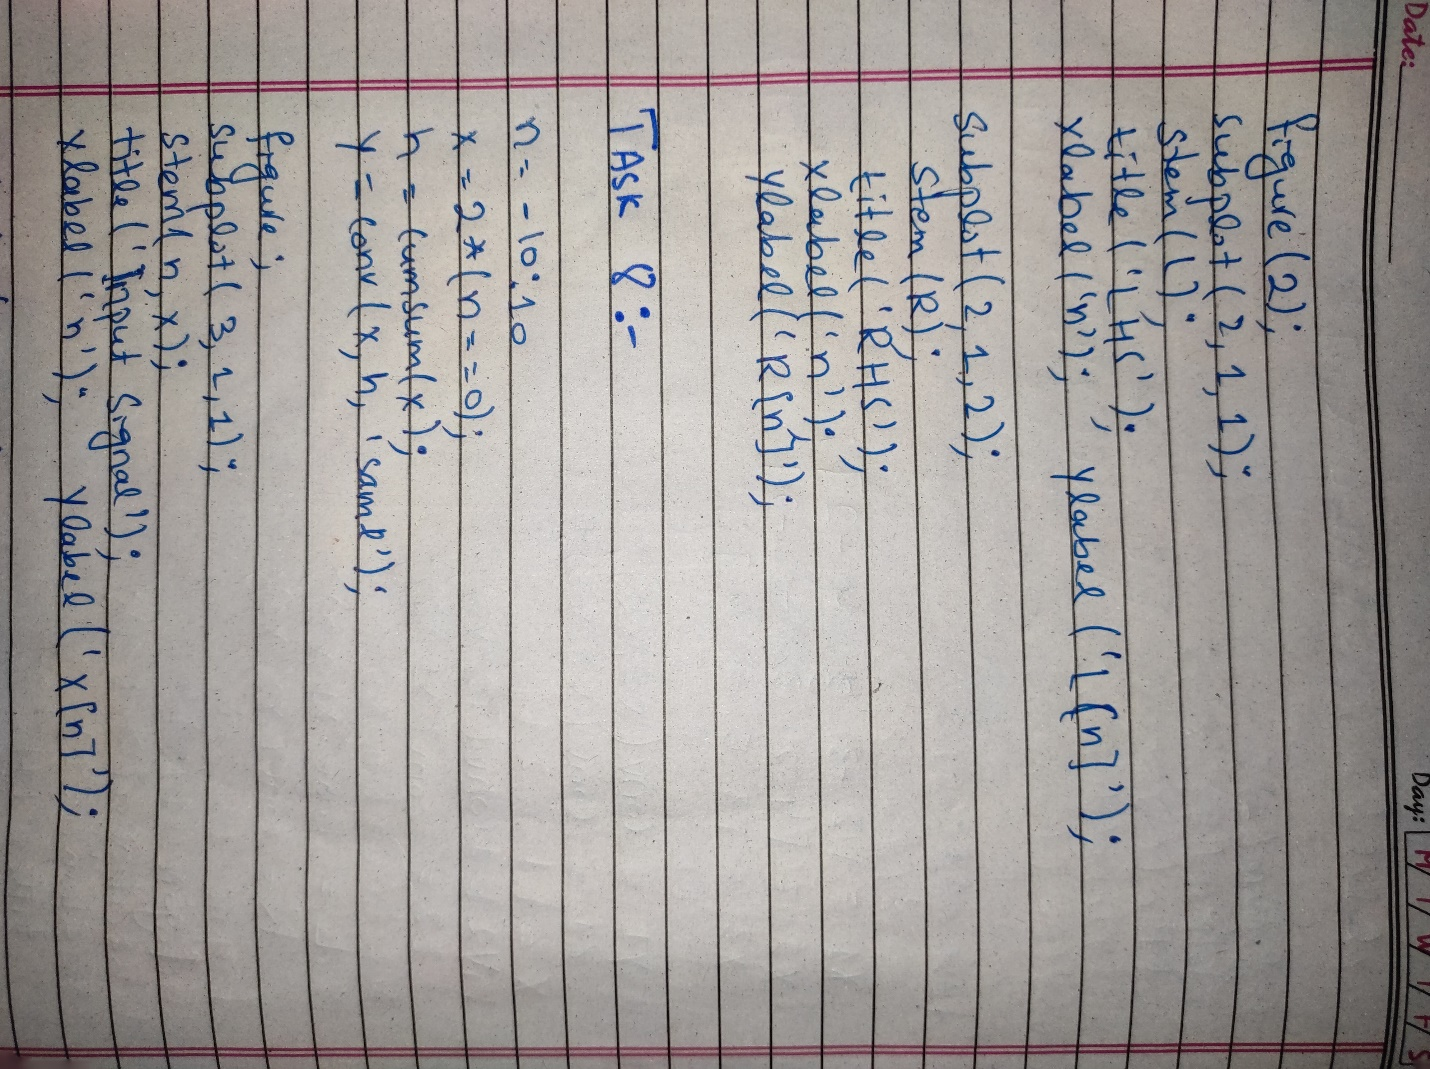 Date:
Day: M T W T F S
figure(2);
subplot(2,1,1);
stem(L);
title('LHS');
xlabel('n'); ylabel('L[n]');
subplot(2,1,2);
stem(R);
title('RHS');
xlabel('n');
ylabel('R[n]');
TASK 8:-
n = -10:10
x = 2*(n==0);
h = cumsum(x);
y = conv(x,h,'same');
figure;
subplot(3,1,1);
stem(n,x);
title('Input Signal');
xlabel('n'); ylabel('x[n]');